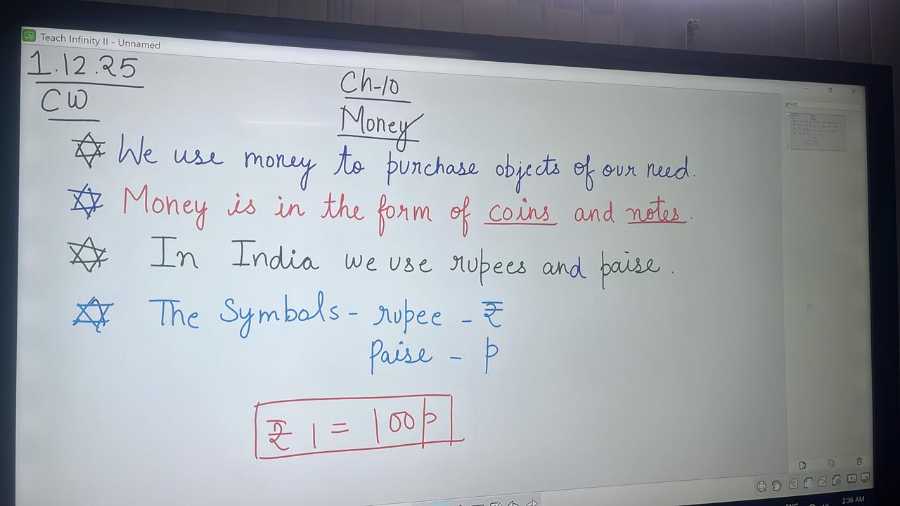 Teach Infinity II - Unnamed
1.12.25
CW
Ch-10
Money
We use money to purchase objects of our need.
Money is in the form of coins and notes.
In India we use rupees and paise.
The Symbols - rupee - ₹
Paise - p
₹ 1 = 100p
2:36 AM